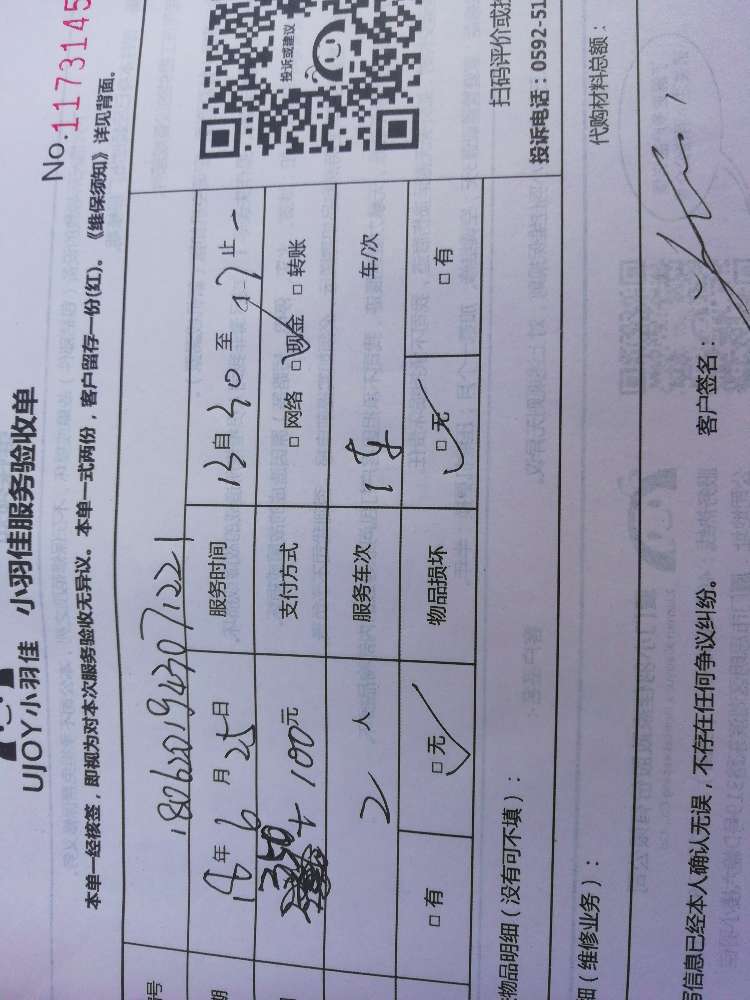 No.1173145
UJOY小羽佳 小羽佳服务验收单
本单一经核签，即视为对本次服务验收无异议。本单一式两份，客户留存一份(红)。《维保须知》详见背面。
号 1806201943071221
期 18年6月25日 服务时间 13自40至 止
350+100元 支付方式 □网络 □现金 □转账
2人 服务车次 1车 车/次
□有 □无 物品损坏 □无 □有
物品明细（没有可不填）：
投诉或建议
扫码评价或投
投诉电话：0592-51
细（维修业务）：
代购材料总额：
写信息已经本人确认无误，不存在任何争议纠纷。 客户签名：